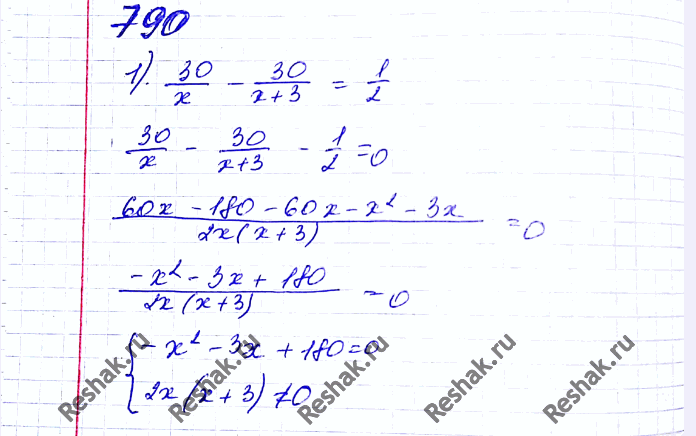 790
1). 30/x - 30/(x+3) = 1/2
30/x - 30/(x+3) - 1/2 = 0
(60x - 180 - 60x - x² - 3x)/(2x(x+3)) = 0
(-x² - 3x + 180)/(2x(x+3)) = 0
{ -x² - 3x + 180 = 0
{ 2x(x+3) ≠ 0
Reshak.ru
Reshak.ru
Reshak.ru
Reshak.ru